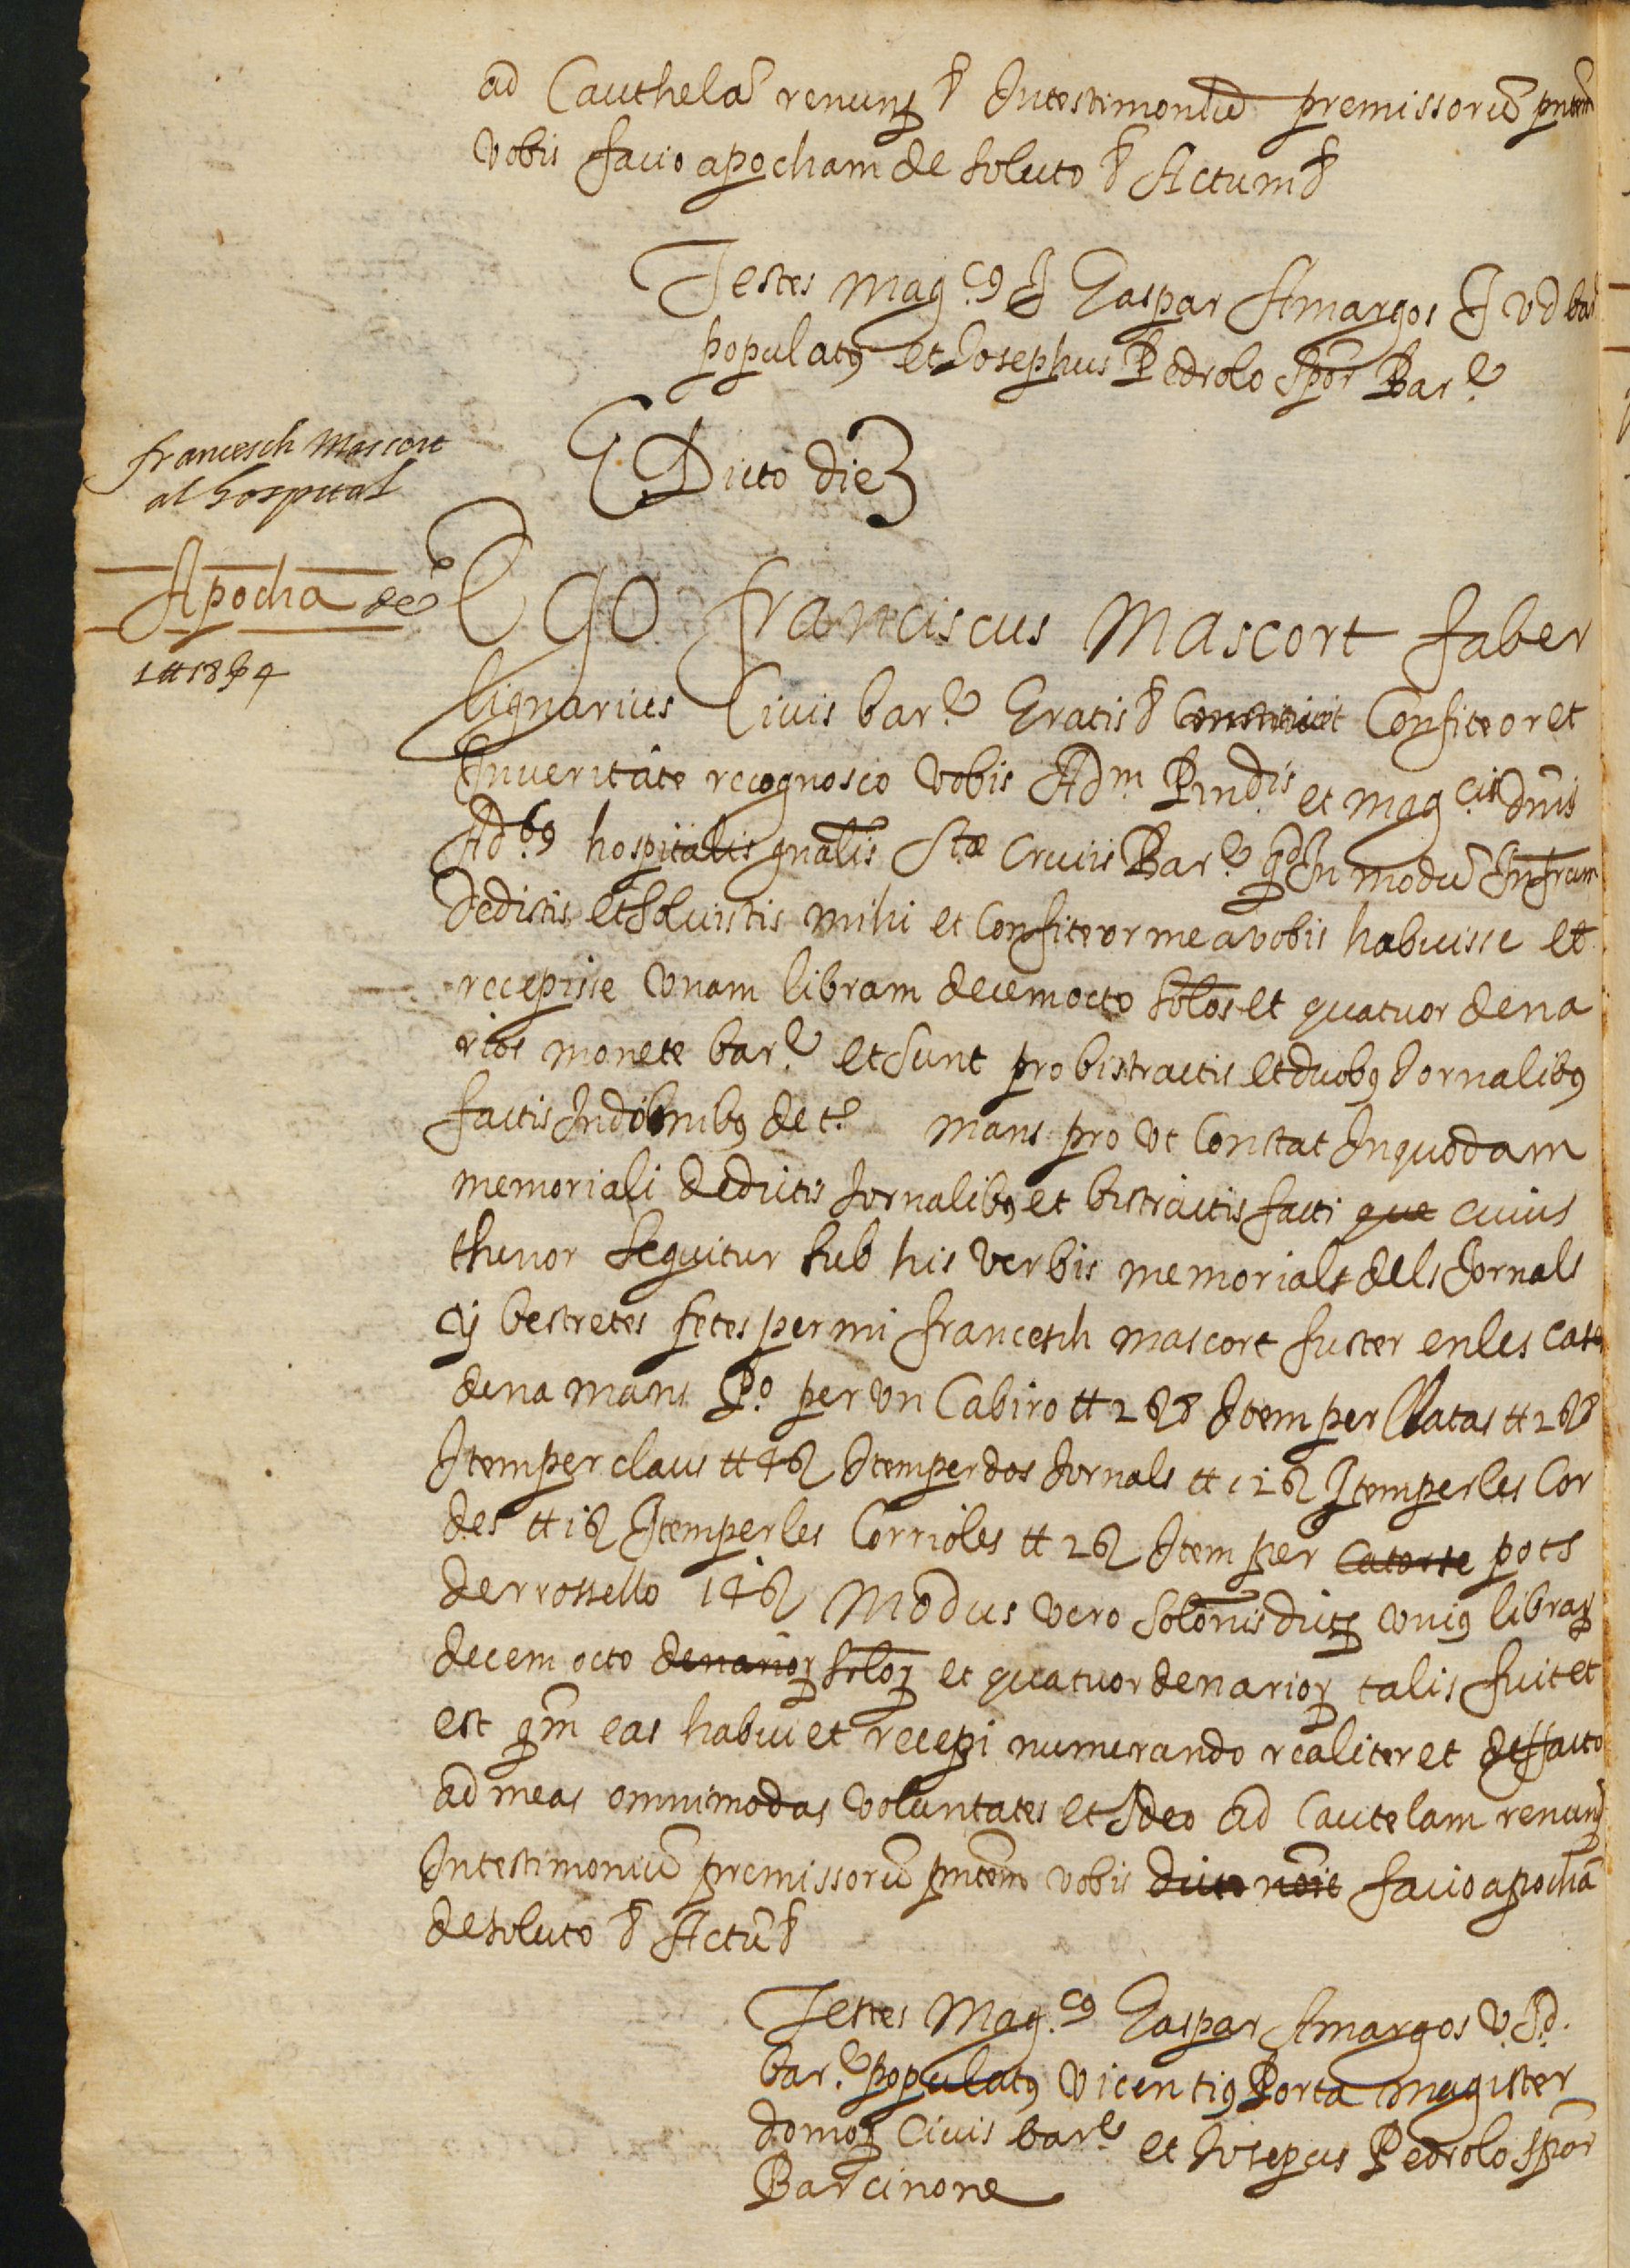 ad Cauthelã renunç & Intestimoniũ premissorũ pntem
vobis facio apocham de soluto & Actum &
Testes Mag.cꝯ Gaspar Amargos J V d bar
populatꝯ et Josephus Pedrolo Spõr Bar.e
francesch Mascort
al hospital
Dicto die
Apocha de
1 ℔ 18 ẞ 4
Ego franciscus Mascort faber
lignarius Ciuis bar.e Gratis & Confiteor et
Inueritate recognosco vobis Adm. Rndis et mag.cis dnis
Ad.bꝯ hospitalis gnalis Stæ Crucis Bar.e qd In modũ Infrum
dedistis et soluistis mihi et Confiteor me a vobis habuisse et
recepisse vnam libram decemocto solos et quatuor dena
rios monete bar.e et sunt pro bistractis et duobꝯ Jornalibꝯ
factis In domibꝯ de t.e mans pro vt Constat Inquodam
memoriali dedictis Jornalibꝯ et bistractis facti que cuius
thenor sequitur sub his verbis memorials dels Jornals
y bestretes fetes per mi francesch mascort fuster en les cases
de na mans P.o per vn Cabiro ℔ 2 ẞ 8 Item per llatas ℔ 2 ẞ 8
Item per claus ℔ 4 ẞ Item per dos Jornals ℔ 12 ẞ Item per les Cor
des ℔ 1 ẞ Item per les Corrioles ℔ 2 ẞ Item per Catorse pots
de rrossello 14 ẞ Modus vero solonis dictꝝ vniꝯ libraꝝ
decem octo denarioꝝ soloꝝ et quatuor denarioꝝ talis fuit et
est qm eas habui et recepi numerando realiter et deffacto
ad meas omnimodas voluntates et Ideo ad Cautelam renunç
Intestimoniũ premissorũ pntem vobis dicto noie facio apochã
de soluto & Actũ &
Testes Mag.cꝯ Gaspar Amargos V. J. d.
bar.e populatꝯ Vicentiꝯ Porta magister
domoꝝ Ciuis bar.e et Josepus Pedrolo spõr
Barcinone